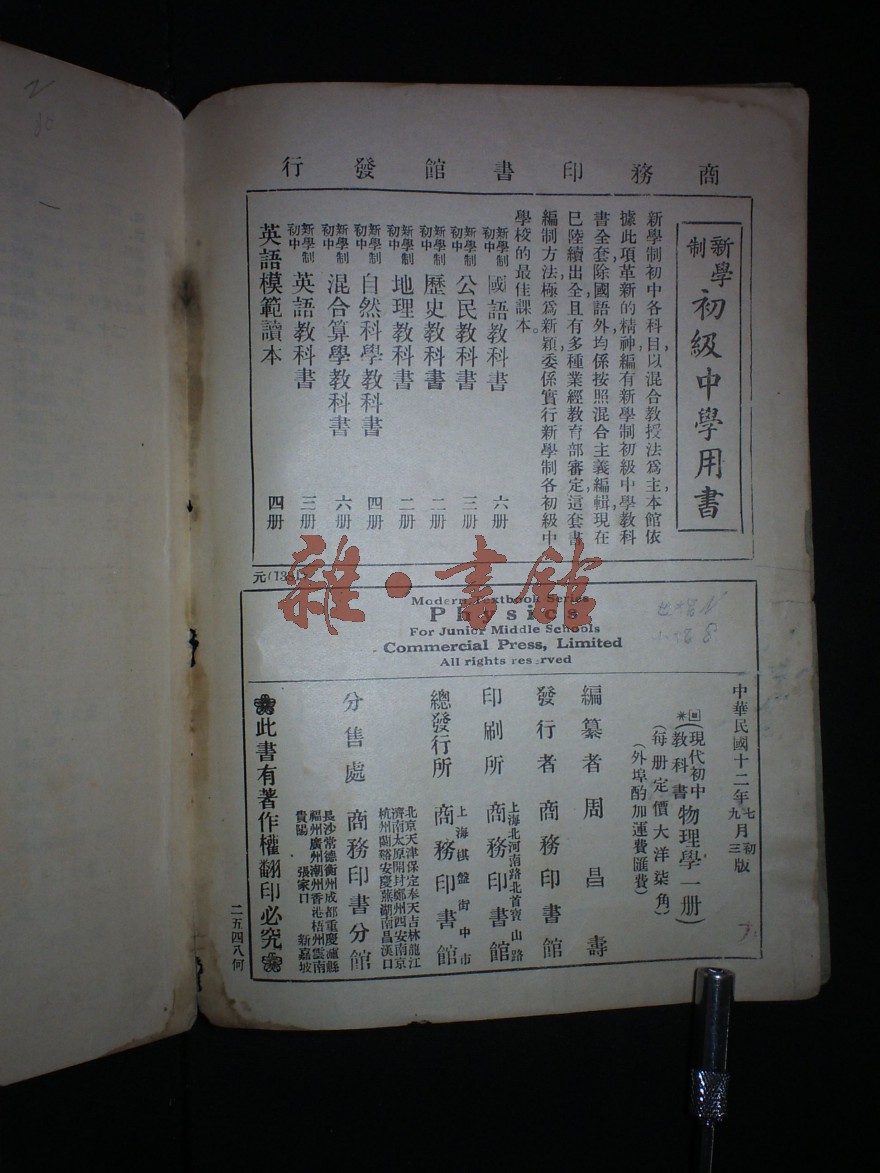 商務印書館發行
新學制
初級中學用書
新學制初中各科目以混合教授法爲主,本館依
據此項革新的精神,編有新學制初級中學教科
書全套除國語外,均係按照混合主義編輯,現在
已陸續出全,且有多種業經教育部審定,這套書
編制方法極爲新穎,委係實行新學制各初級中
學校的最佳課本。
新學制初中 國語教科書 六册
新學制初中 公民教科書 三册
新學制初中 歷史教科書 二册
新學制初中 地理教科書 二册
新學制初中 自然科學教科書 四册
新學制初中 混合算學教科書 六册
新學制初中 英語教科書 三册
英語模範讀本 四册
雜·書館
Modern Textbook Series
Physics
For Junior Middle Schools
Commercial Press, Limited
All rights reserved
中華民國十二年七月初版
九 三
(現代初中教科書 物理學一册)
(每册定價大洋柒角)
(外埠酌加運費匯費)
編纂者 周昌壽
發行者 商務印書館
上海北河南路北首寶山路
印刷所 商務印書館
上海棋盤街中市
總發行所 商務印書館
北京天津保定奉天吉林龍江
濟南太原開封鄭州西安南京
杭州蘭谿安慶蕪湖南昌漢口
分售處 商務印書分館
長沙常德衡州成都重慶瀘縣
福州廣州潮州香港梧州雲南
貴陽 張家口 新嘉坡
此書有著作權翻印必究
二五四八何